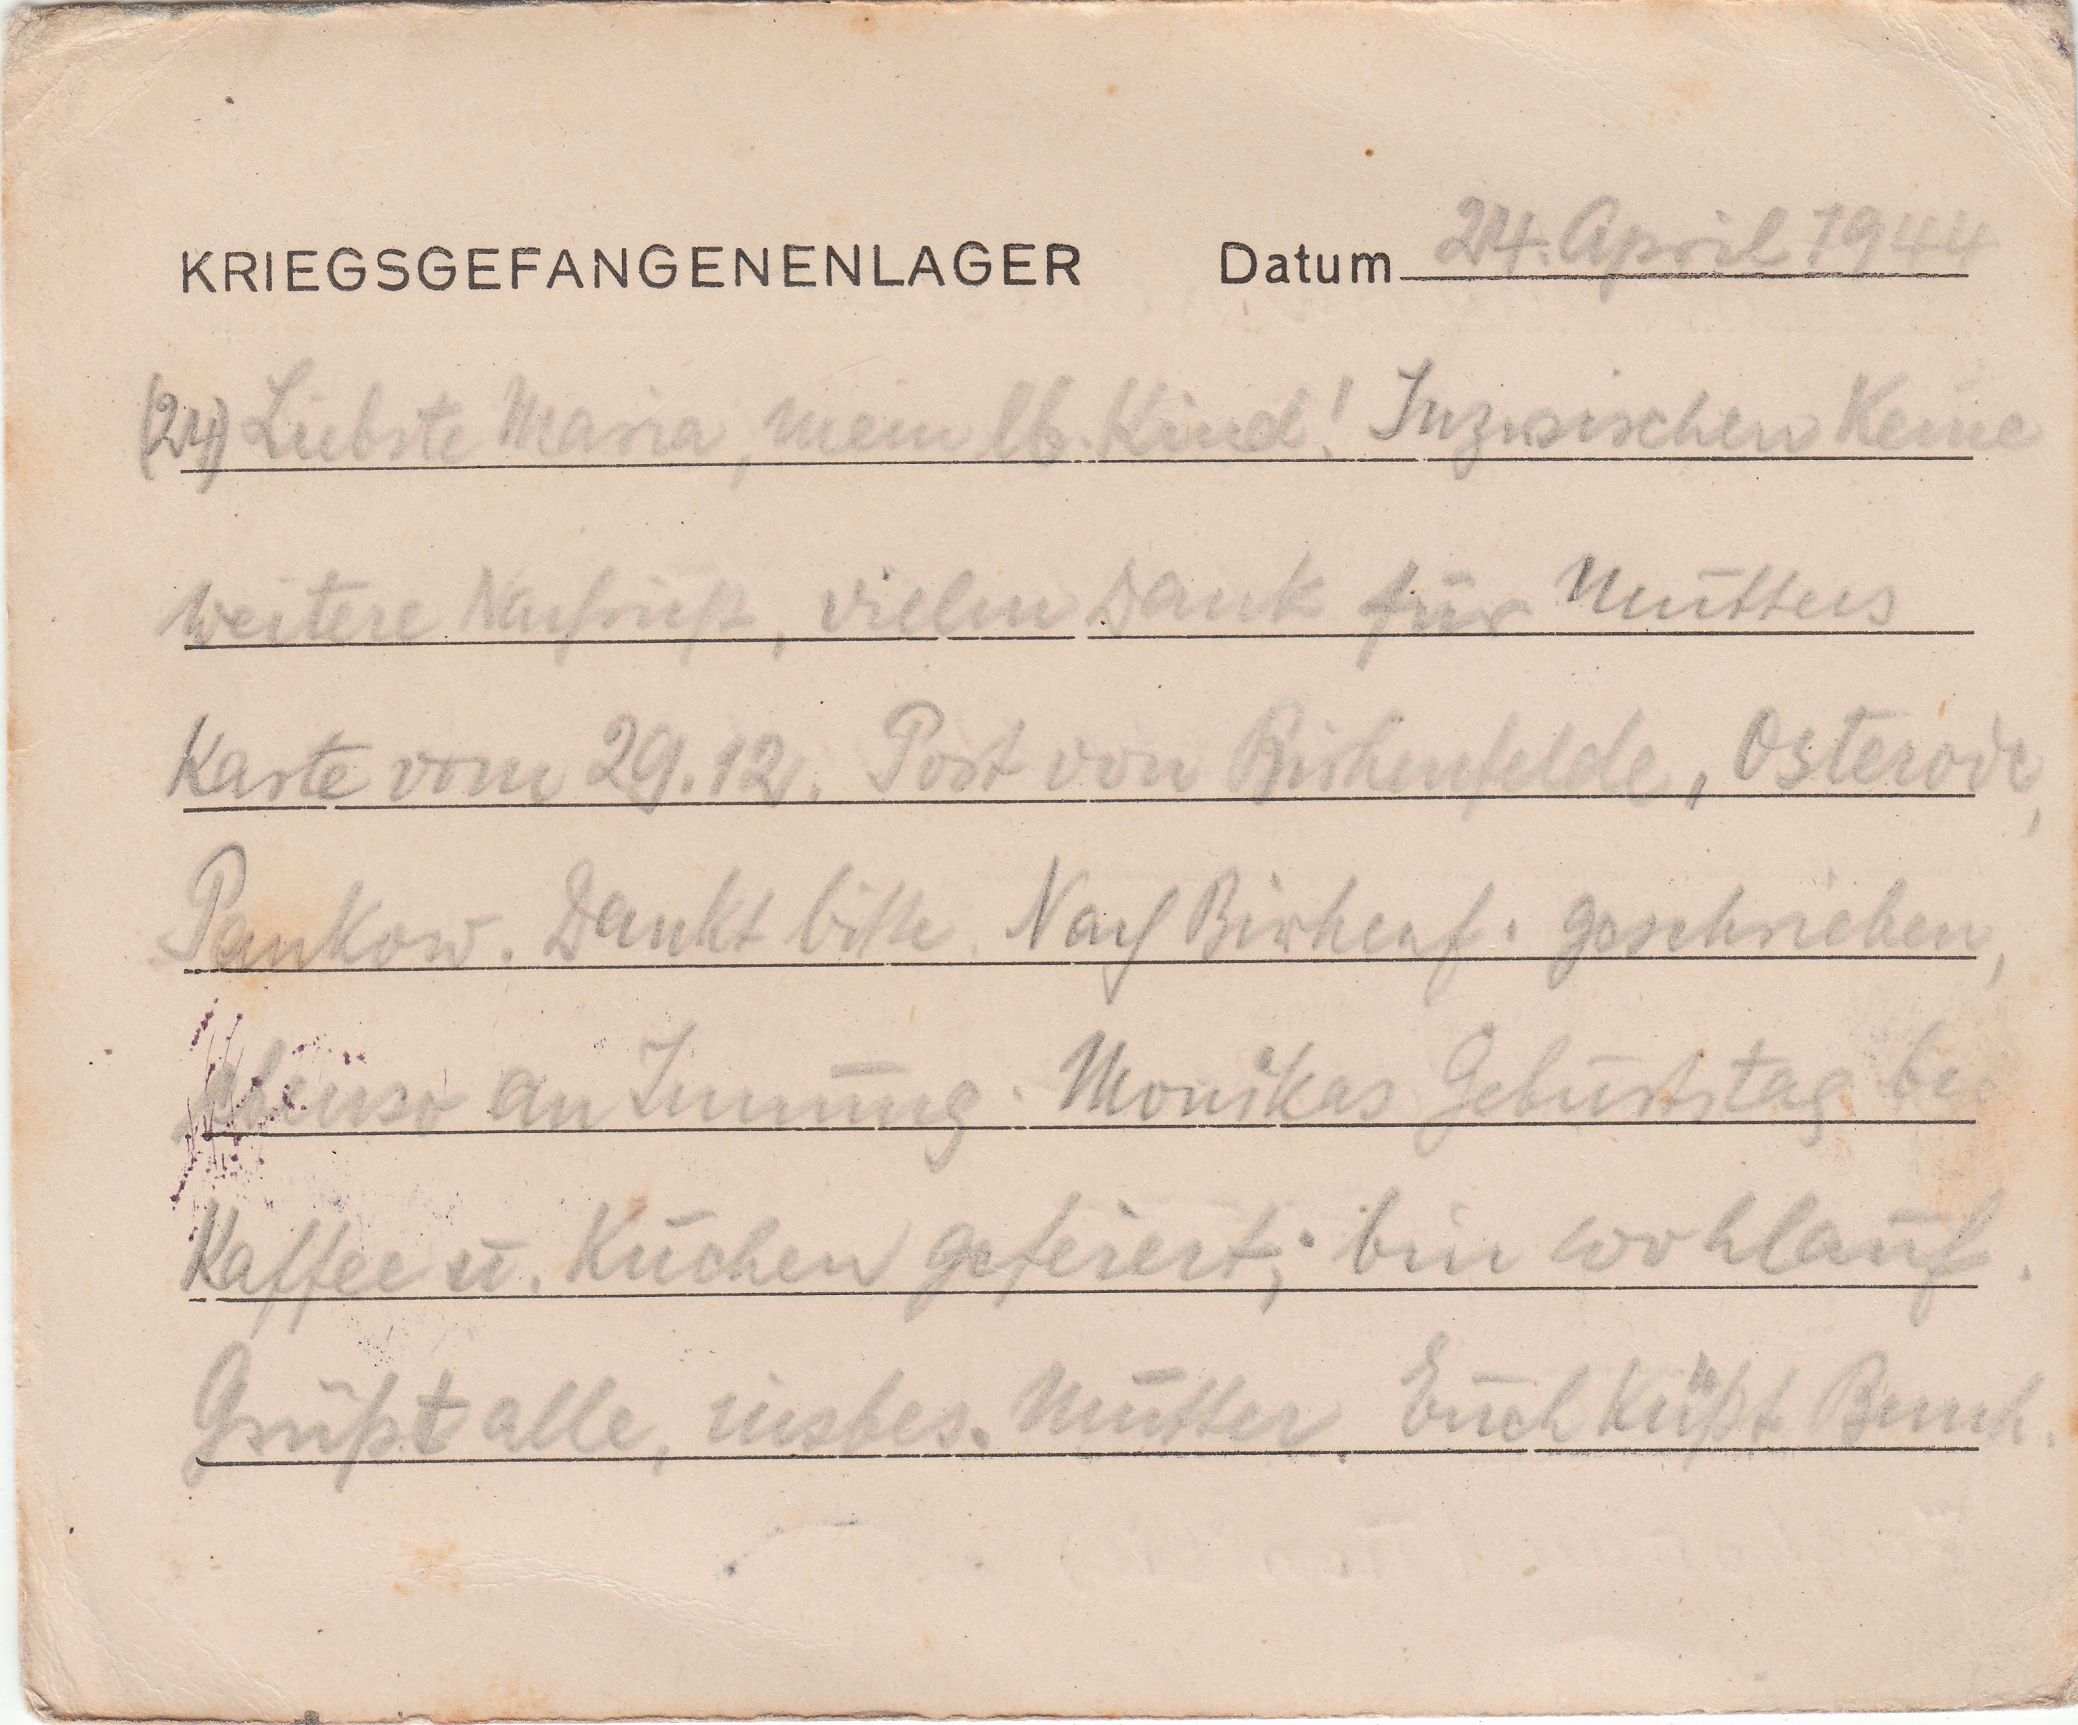 KRIEGSGEFANGENENLAGER Datum 24. April 1944
(24) Liebste Maria, mein lb. Kind! Inzwischen keine
weitere Nachricht, vielen Dank für Mutters
Karte vom 29.12. Post von Birkenfelde, Osterode,
Pankow. Dankt bitte. Nach Birkenf. geschrieben,
ebenso an Innung. Monikas Geburtstag bei
Kaffee u. Kuchen gefeiert; bin wohlauf.
Grüßt alle, insbes. Mutter. Euch küßt